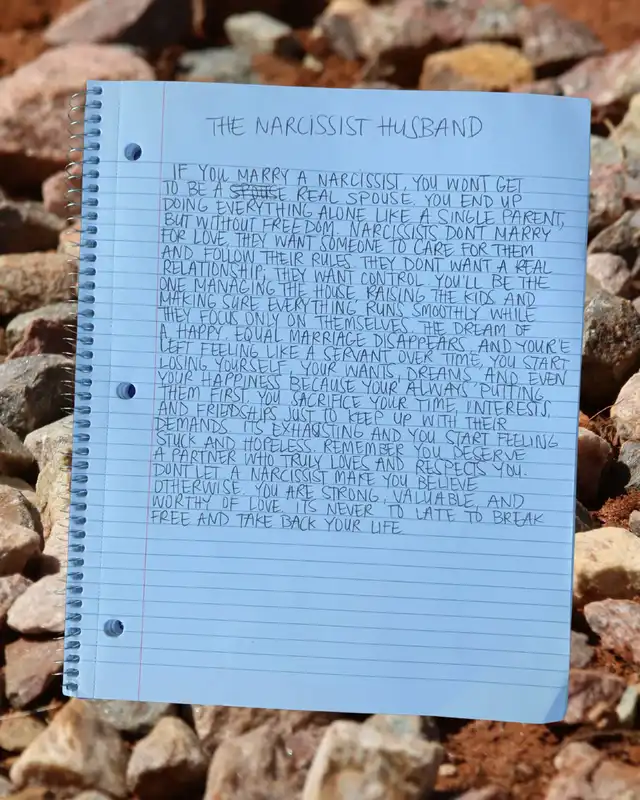 THE NARCISSIST HUSBAND
IF YOU MARRY A NARCISSIST, YOU WONT GET
TO BE A REAL SPOUSE. YOU END UP
DOING EVERYTHING ALONE LIKE A SINGLE PARENT,
BUT WITHOUT FREEDOM. NARCISSISTS DONT MARRY
FOR LOVE, THEY WANT SOMEONE TO CARE FOR THEM
AND FOLLOW THEIR RULES. THEY DONT WANT A REAL
RELATIONSHIP, THEY WANT CONTROL. YOU'LL BE THE
ONE MANAGING THE HOUSE, RAISING THE KIDS AND
MAKING SURE EVERYTHING RUNS SMOOTHLY WHILE
THEY FOCUS ONLY ON THEMSELVES. THE DREAM OF
A HAPPY, EQUAL MARRIAGE DISAPPEARS, AND YOUR'E
LEFT FEELING LIKE A SERVANT. OVER TIME, YOU START
LOSING YOURSELF. YOUR WANTS, DREAMS, AND EVEN
YOUR HAPPINESS BECAUSE YOUR ALWAYS PUTTING
THEM FIRST. YOU SACRIFICE YOUR TIME, INTERESTS,
AND FRIENDSHIPS JUST TO KEEP UP WITH THEIR
DEMANDS. ITS EXHAUSTING AND YOU START FEELING
STUCK AND HOPELESS. REMEMBER YOU DESERVE
A PARTNER WHO TRULY LOVES AND RESPECTS YOU.
DONT LET A NARCISSIST MAKE YOU BELIEVE
OTHERWISE. YOU ARE STRONG, VALUABLE, AND
WORTHY OF LOVE. ITS NEVER TO LATE TO BREAK
FREE AND TAKE BACK YOUR LIFE